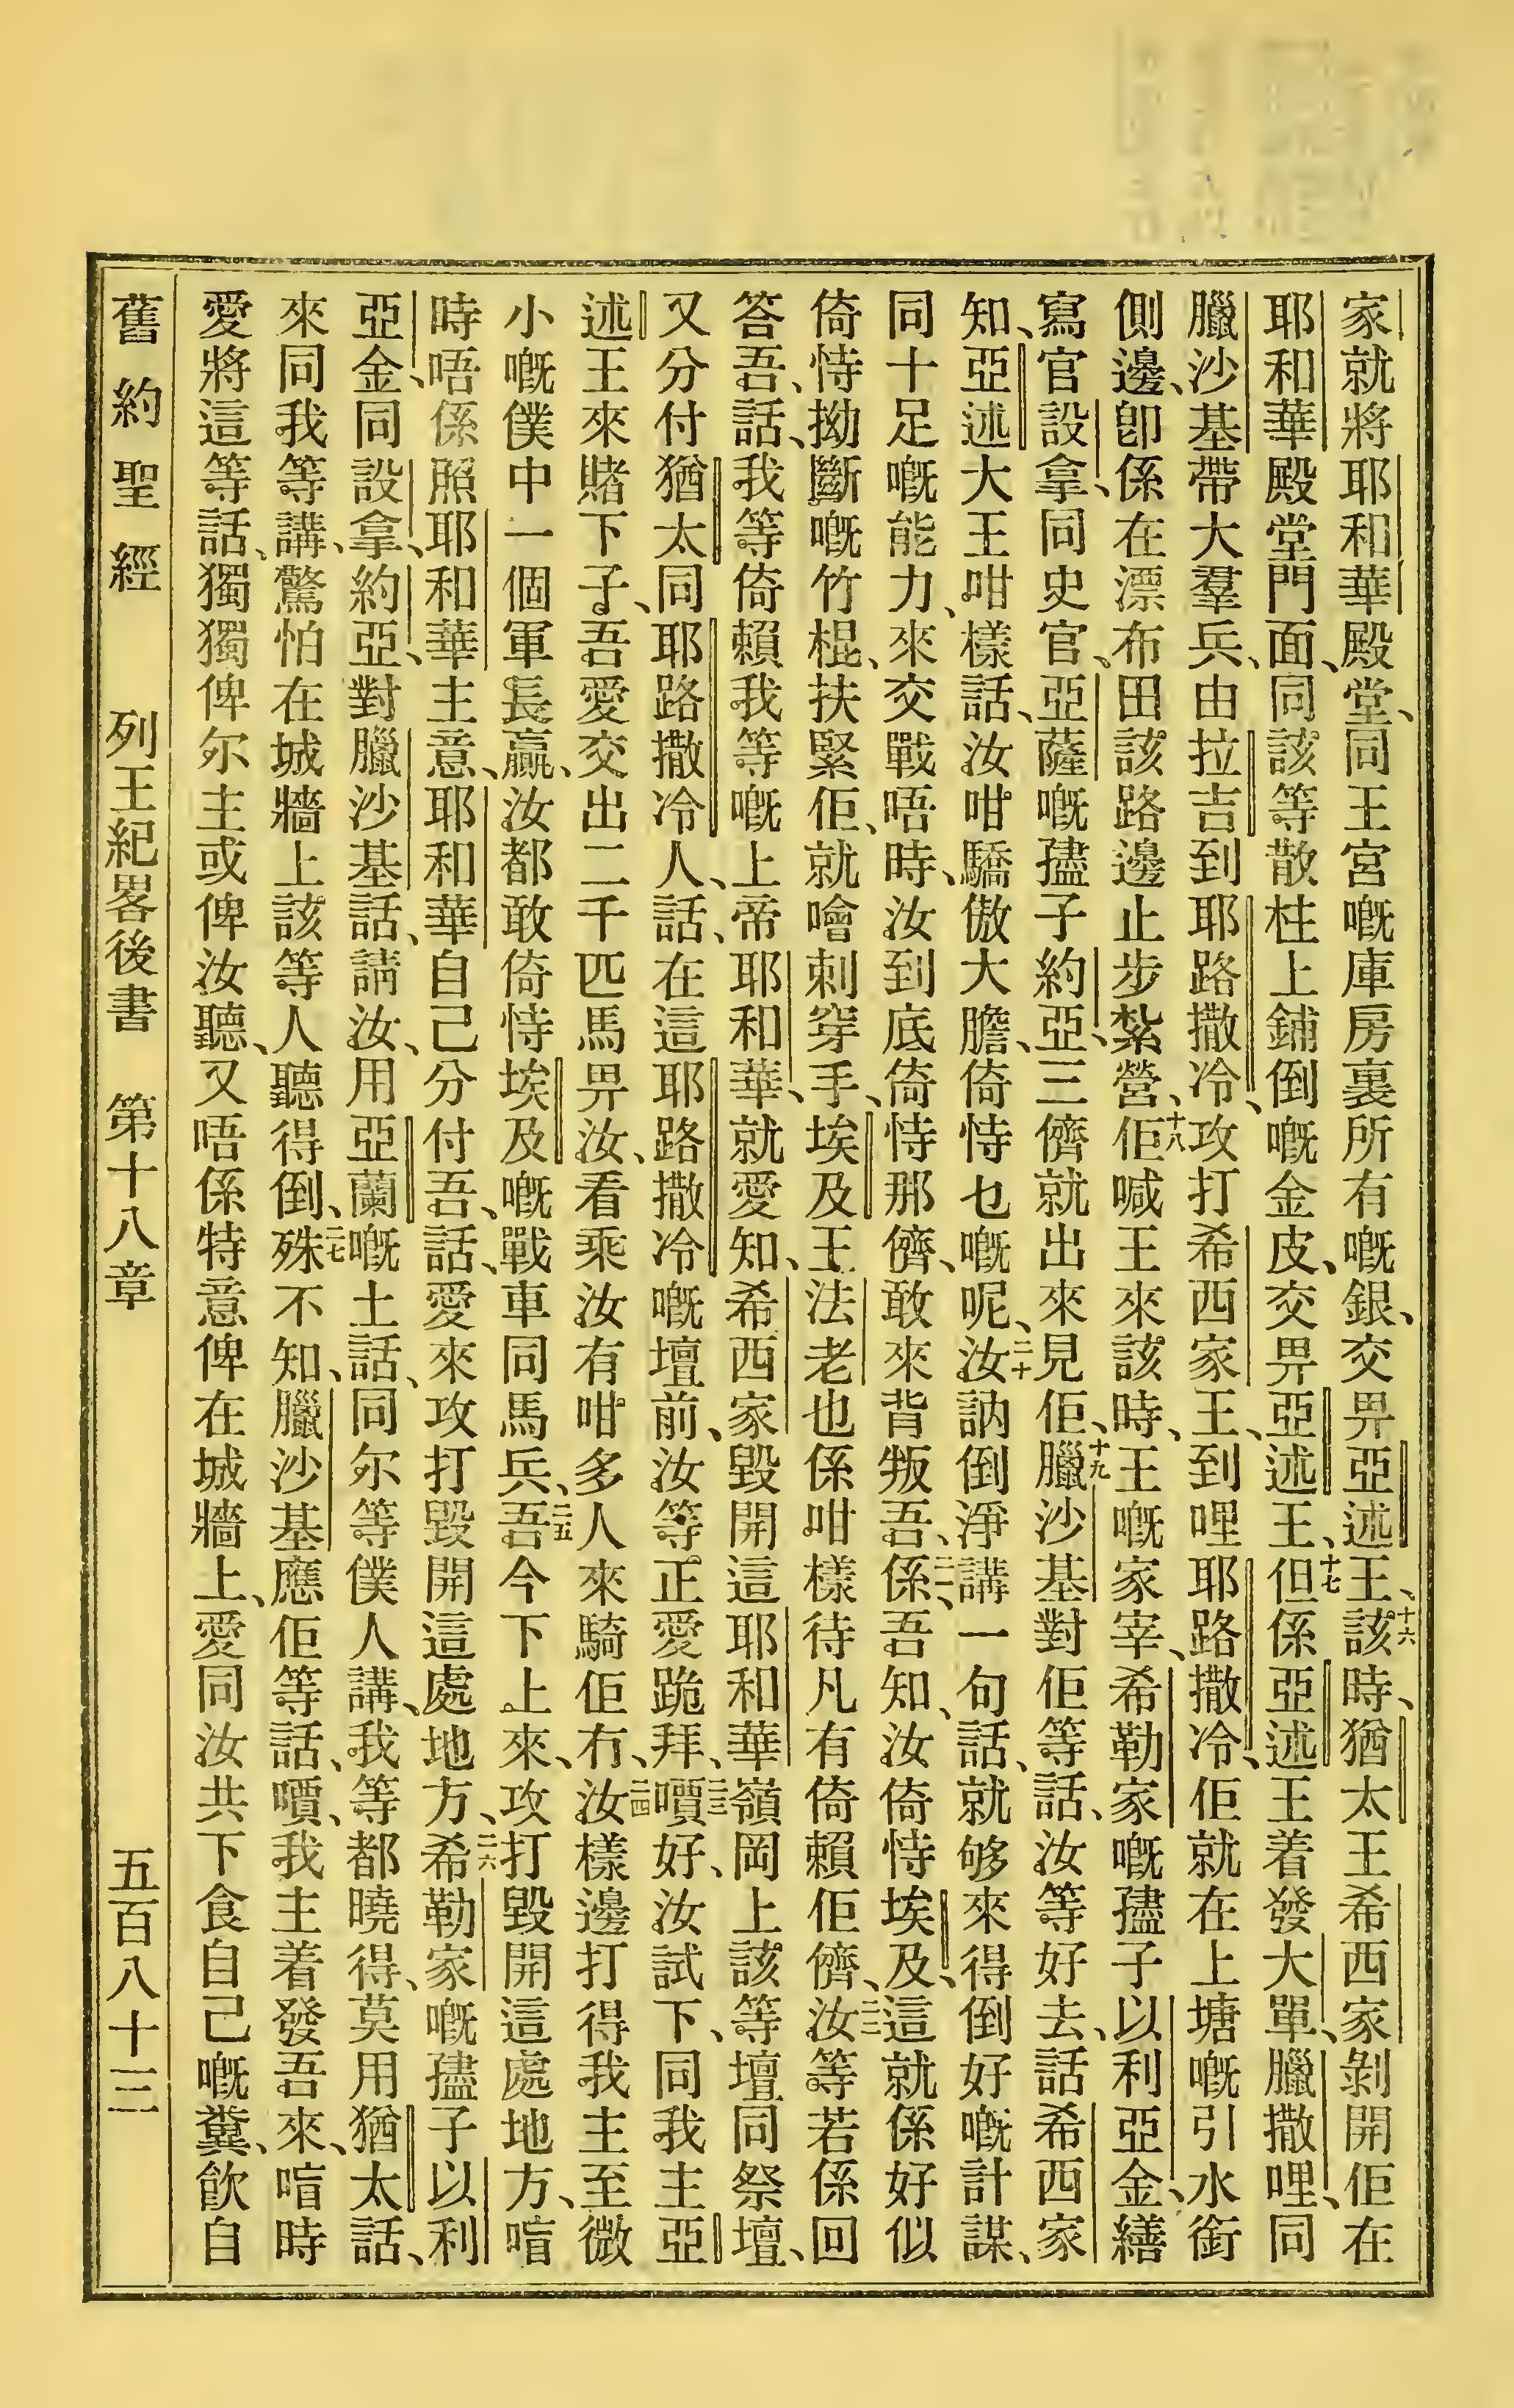 家就將耶和華殿堂、同王宮嘅庫房裏所有嘅銀、交畀亞述王、十六該時、猶太王希西家剝開佢在
耶和華殿堂門面、同該等散柱上鋪倒嘅金皮、交畀亞述王、十七但係亞述王着發大單、臘撒哩、同
臘沙基帶大羣兵、由拉吉到耶路撒冷、攻打希西家王、到哩耶路撒冷、佢就在上塘嘅引水銜
側邊、卽係在漂布田該路邊止步紮營、十八佢喊王來該時、王嘅家宰、希勒家嘅孻子以利亞金、繕
寫官設拿、同史官、亞薩嘅孻子約亞、三儕就出來見佢、十九臘沙基對佢等話、汝等好去、話希西家
知、亞述大王咁樣話、汝咁驕傲大膽、倚恃乜嘅呢、二十汝訥倒淨講一句話、就够來得倒好嘅計謀、
同十足嘅能力、來交戰唔時、汝到底倚恃那儕、敢來背叛吾、二一係吾知、汝倚恃埃及、這就係好似
倚恃拗斷嘅竹棍、扶緊佢、就噲刺穿手、埃及王法老也係咁樣待凡有倚賴佢儕、二二汝等若係回
答吾、話、我等倚賴我等嘅上帝耶和華、就愛知、希西家毀開這耶和華嶺岡上該等壇同祭壇、
又分付猶太同耶路撒冷人、話、在這耶路撒冷嘅壇前、汝等正愛跪拜、二三嘪好、汝試下、同我主亞
述王來賭下子、吾愛交出二千匹馬畀汝、看乘汝有咁多人來騎佢冇、二四汝樣邊打得我主至微
小嘅僕中一個軍長贏、汝都敢倚恃埃及嘅戰車同馬兵、二五吾今下上來、攻打毀開這處地方、喑
時唔係照耶和華主意、耶和華自己分付吾、話、愛來攻打毀開這處地方、二六希勒家嘅孻子以利
亞金、同設拿、約亞、對臘沙基話、請汝、用亞蘭嘅土話、同尔等僕人講、我等都曉得、莫用猶太話、
來同我等講、驚怕在城牆上該等人聽得倒、二七殊不知、臘沙基應佢等話、嘪、我主着發吾來、喑時
愛將這等話、獨獨俾尔主或俾汝聽、又唔係特意俾在城牆上、愛同汝共下食自己嘅糞、飮自
舊約聖經 列王紀畧後書 第十八章 五百八十三